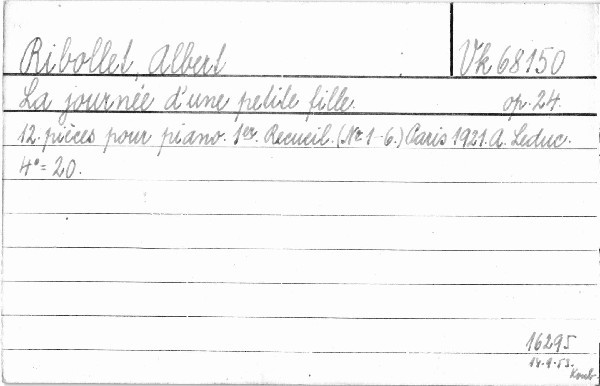 Ribollet, Albert Vk 68150
La journée d'une petite fille. op. 24.
12 pièces pour piano. 1er. Recueil. (Nr 1-6.) Paris 1921. A. Leduc.
4° = 20.
16295
14.9.53.